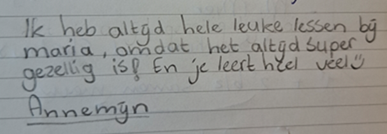 Ik heb altijd hele leuke lessen bij
maria, omdat het altijd super
gezellig is! En je leert heel veel
Annemijn